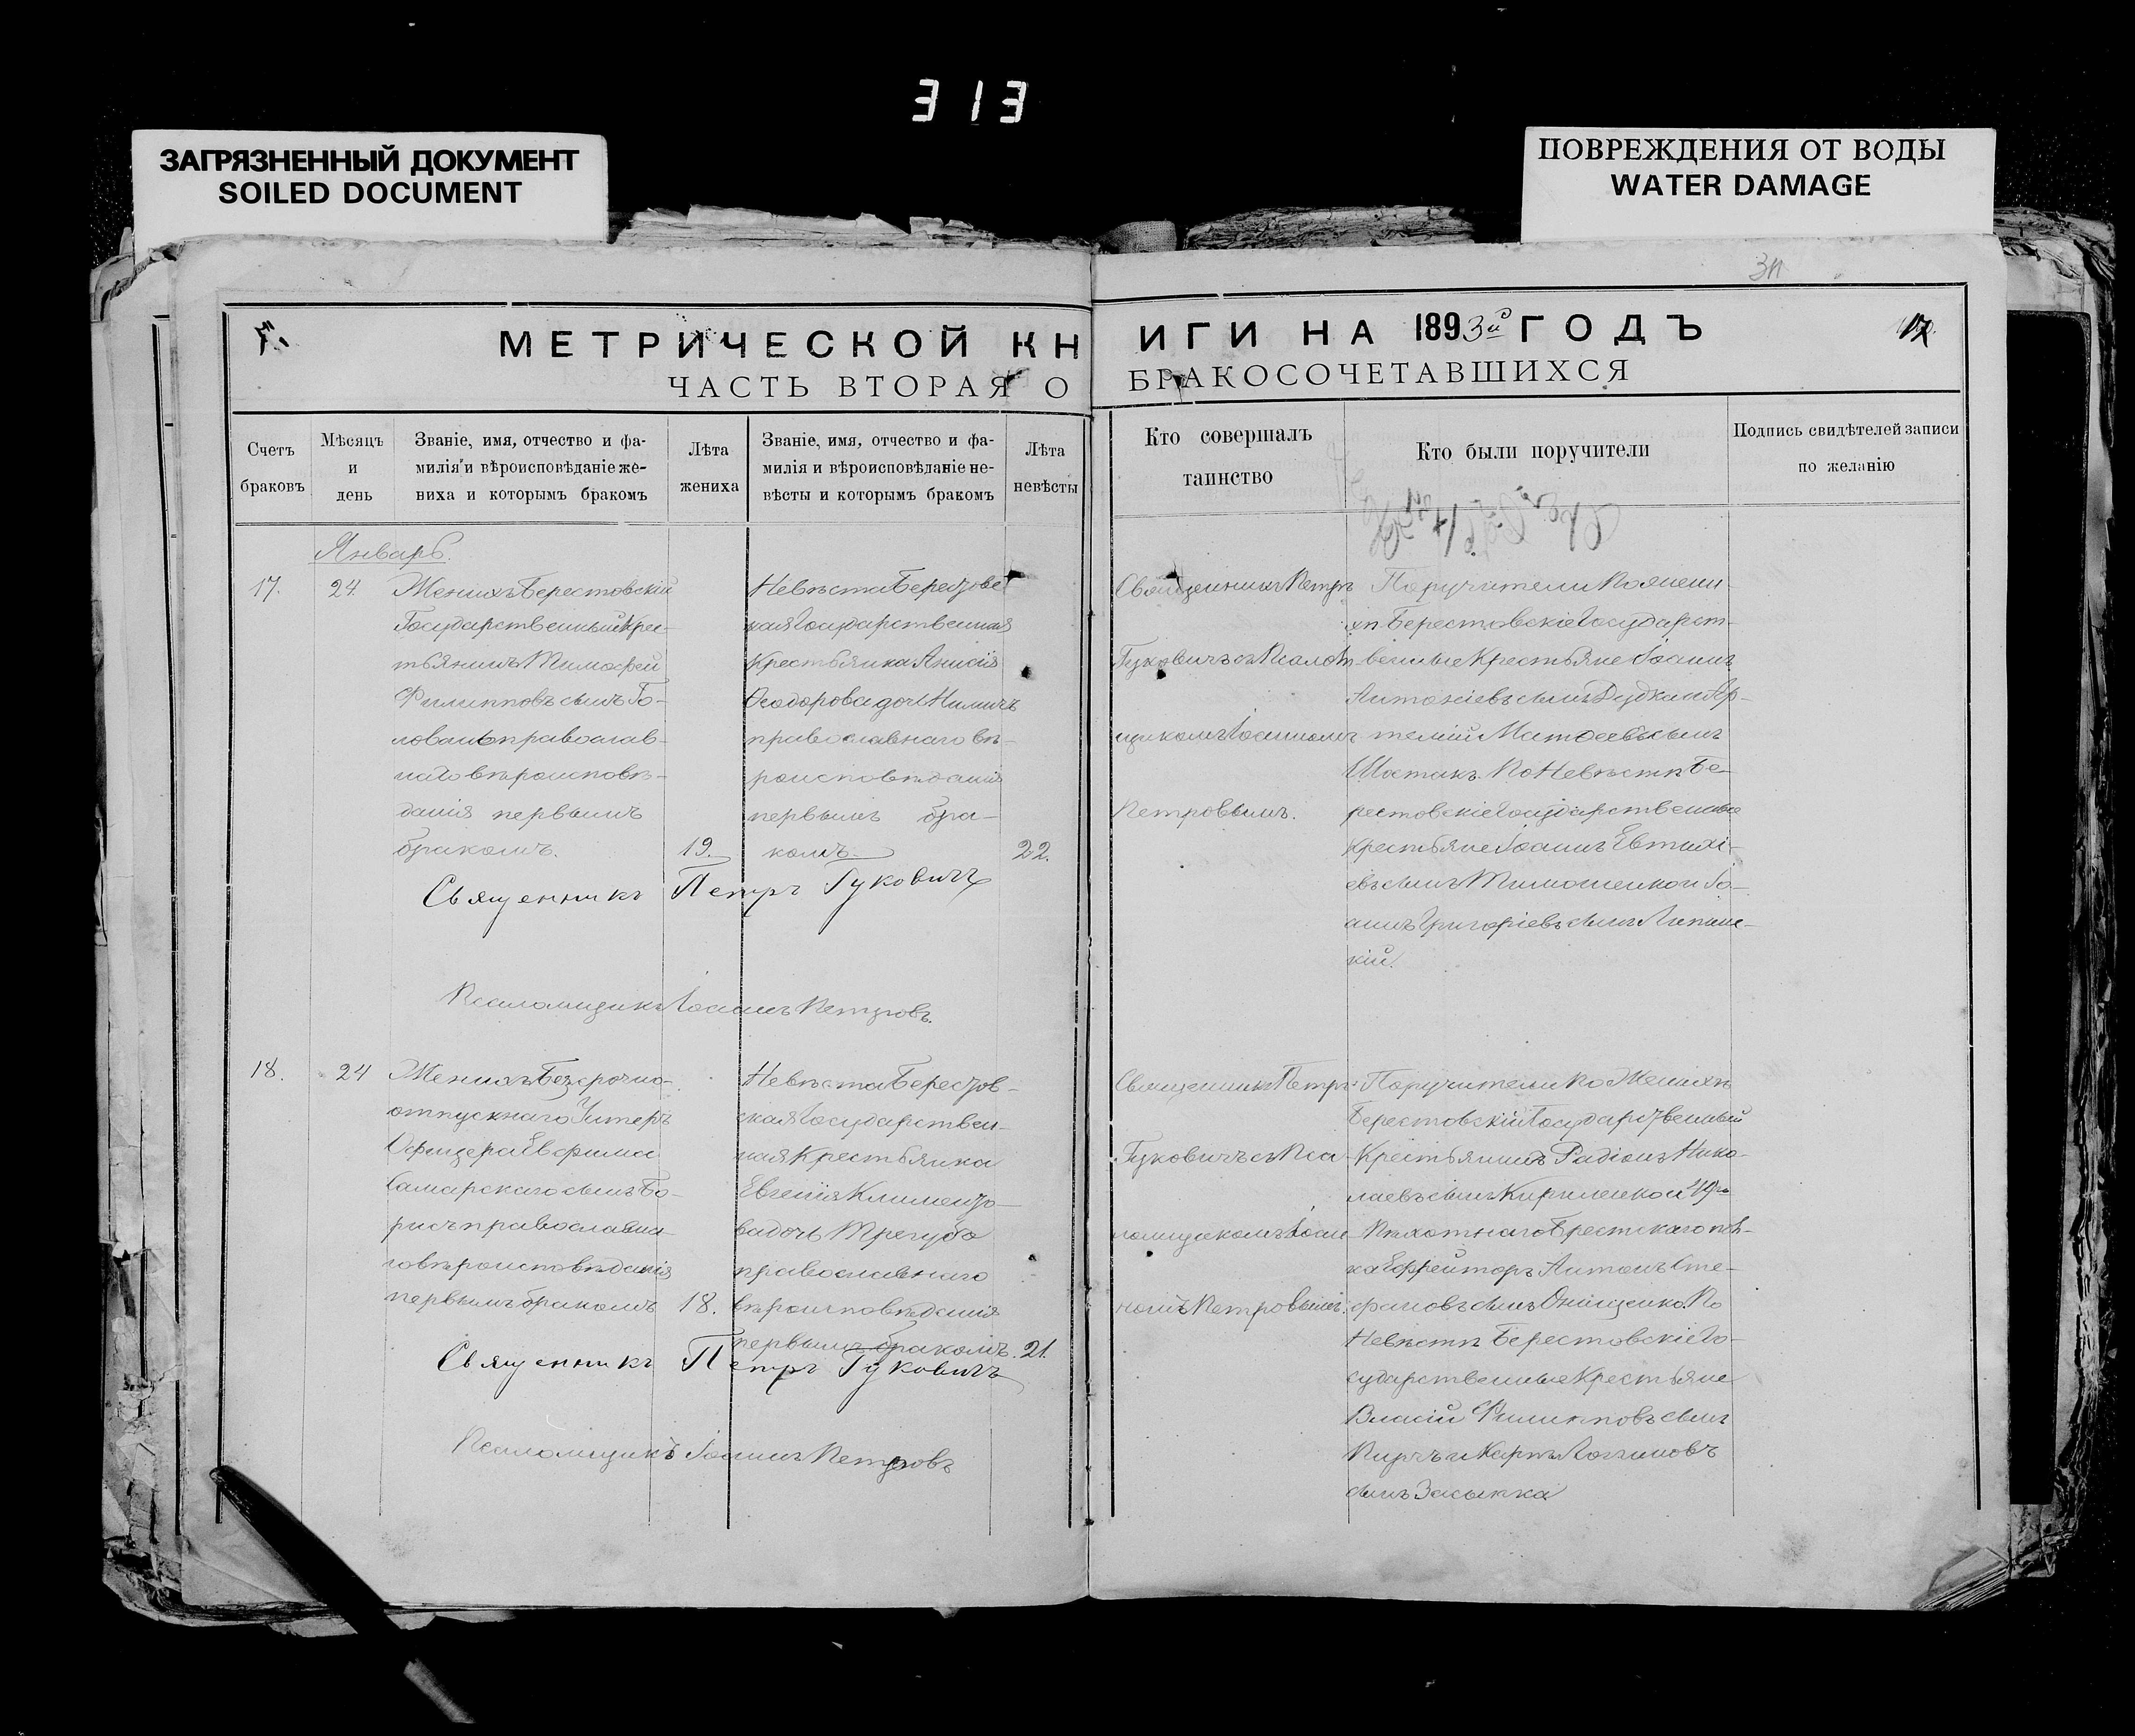 313
ЗАГРЯЗНЕННЫЙ ДОКУМЕНТ
SOILED DOCUMENT
ПОВРЕЖДЕНИЯ ОТ ВОДЫ
WATER DAMAGE
МЕТРИЧЕСКОЙ КНИГИ НА 1893й ГОДЪ
ЧАСТЬ ВТОРАЯ О БРАКОСОЧЕТАВШИХСЯ
Счетъ
браковъ
Мѣсяцъ
и
день
Званіе, имя, отчество и фа-
милія и вѣроисповѣданіе же-
ниха и которымъ бракомъ
Лѣта
жениха
Званіе, имя, отчество и фа-
милія и вѣроисповѣданіе не-
вѣсты и которымъ бракомъ
Лѣта
невѣсты
Кто совершалъ
таинство
Кто были поручители
Подпись свидѣтелей записи
по желанію
Январь.
17.
24.
Женихъ Берестовскій
Государственный Кре-
стьянинъ Тимофей
Филипповъ сынъ Го-
ловань православ-
наго вѣроисповѣ-
данія первымъ
бракомъ.
19.
Невѣста Берестовс
кая Государственная
Крестьянка Анисія
Ѳеодорова дочь
православнаго вѣ-
роисповѣданія
первымъ бра-
комъ
22.
Священникъ Петръ
Гуковичъ съ Псалом
щикомъ Іоанномъ
Петровымъ.
Поручители По жени
хѣ Берестовскіе Государст-
венные Крестьяне Іоаннъ
Антоніевъ сынъ Дудка и Ар-
темій Матѳеевъ сынъ
Шостакъ. По Невѣстѣ Бе-
рестовскіе Государственные
Крестьяне Іоаннъ Евтихі-
евъ сынъ Тимошенко и Іо-
аннъ Григоріевъ сынъ
кій.
Священникъ Петръ Гуковичъ
Псаломщикъ Іоаннъ Петровъ.
18.
24
Женихъ Безсрочно-
отпускнаго Унтеръ
Офицера Евфима
Самарскаго сынъ Бо-
рисъ православна-
го вѣроисповѣданія
первымъ бракомъ
18.
Невѣста Берестов-
ская Государствен-
ная Крестьянка
Евгенія Климентo-
ва дочь Трегубо
православнаго
вѣроисповѣданія
первымъ бракомъ.
21.
Священникъ Петръ
Гуковичъ съ Пса
ломщикомъ Іоан
номъ Петровымъ.
Поручители По Женихѣ
Берестовскій Государственный
Крестьянинъ Радіонъ Нико-
лаевъ сынъ Кириленко и
Пѣхотнаго Брестскаго пол-
ка Ефрейторъ Антонъ Сте-
фановъ сынъ Онищенко. По
Невѣстѣ Берестовскіе Го-
сударственные Крестьяне
Власій Филипповъ сынъ
и Карпъ Логгиновъ
сынъ
Священникъ Петръ Гуковичъ
Псаломщикъ Іоаннъ Петровъ